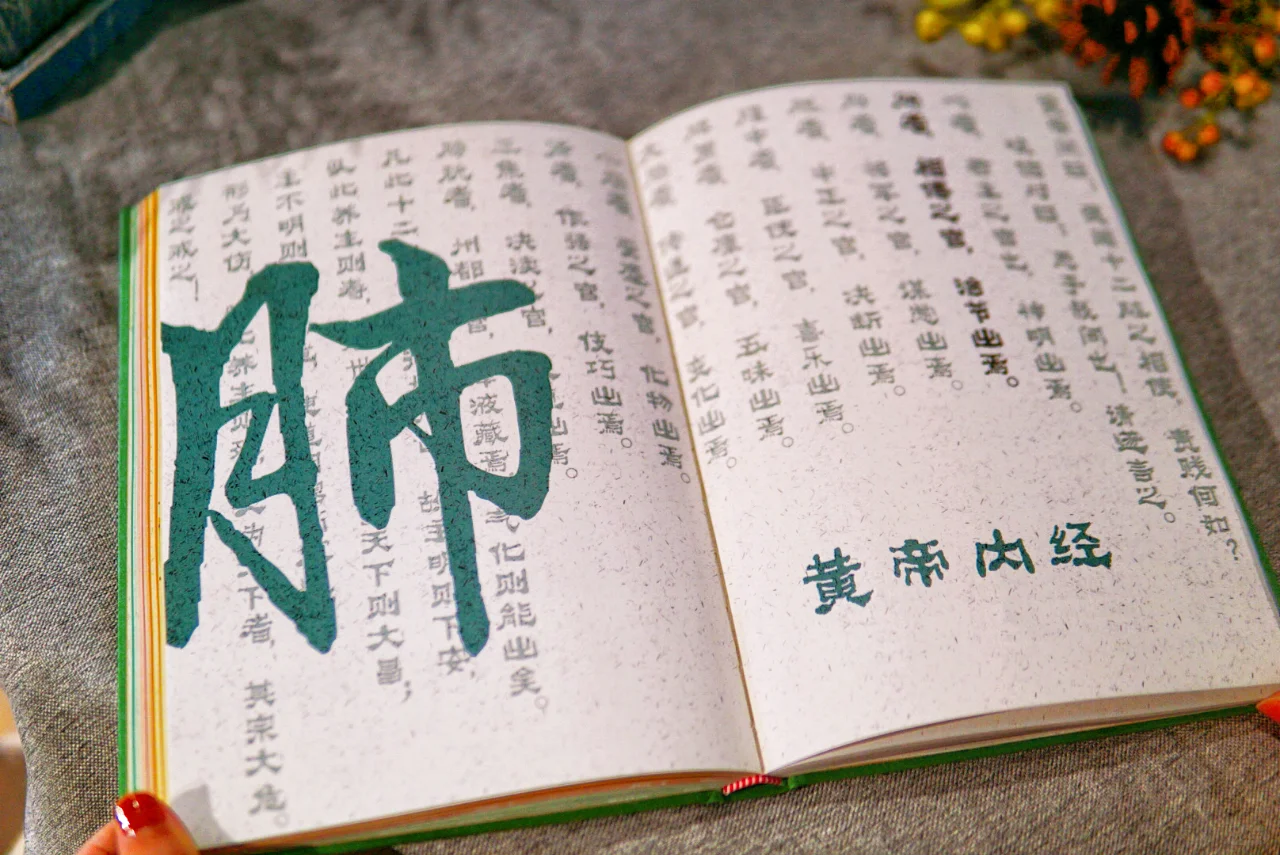 黄帝问曰：愿闻十二脏之相使，贵贱何如？
岐伯对曰：悉乎哉问也！请遂言之。
心者，君主之官也，神明出焉。
肺者，相傅之官，治节出焉。
肝者，将军之官，谋虑出焉。
胆者，中正之官，决断出焉。
膻中者，臣使之官，喜乐出焉。
脾胃者，仓廪之官，五味出焉。
大肠者，传道之官，变化出焉。
黄帝内经
小肠者，受盛之官，化物出焉。
肾者，作强之官，伎巧出焉。
三焦者，决渎之官，出焉。
膀胱者，州都之官，津液藏焉，气化则能出矣。
凡此十二 故主明则下安，
以此养生则寿， 天下则大昌；
主不明则
形乃大伤，以此养生则殃，以为天下者，其宗大危。
戒之戒之！
肺